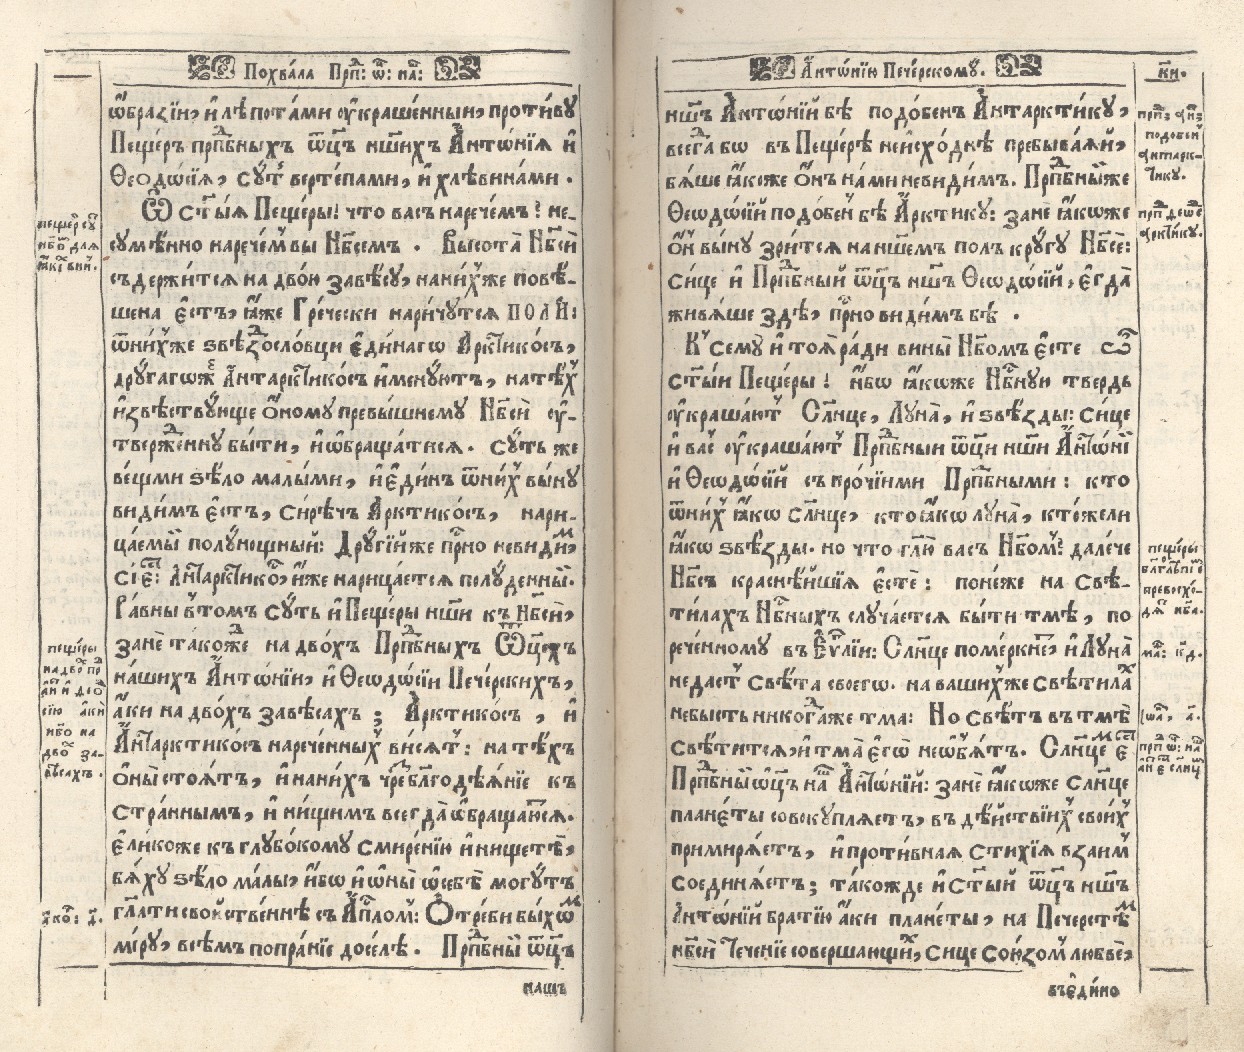 Похвала Прп҃: ѿ: на҃:
ѡбразїи, и лѣпотами оукрашенныи, противу
Пещеръ прпⷣбныхъ ѿц҃ъ нш҃ихъ Антѡнїѧ и
Ѳеодѡсїѧ, сут҃ вертепами, и хлѣвинами.
Ѿ ст҃ыѧ Пещеры! что васъ наречемъ! не-
сумѣнно наречем вы Нб҃семъ. Высота Нб҃сѝ
съдержитсѧ на двою завѣсу, на них же повѣ-
шена естъ, ꙗже Гречески наричутсѧ ПОЛИ:
ѿ них же ѕвѣздословци единагѡ Арктикосъ,
другагѡж Антарктикосъ именуютъ, на тѣх
извѣствующе оному превышнему Нб҃сѝ оу-
тверженну быти, и ѡбращатисѧ. суть же
вещми ѕѣло малыми, и единъ ѿ них выну
видимъ естъ, сирѣчъ Арктикосъ, нари-
цаемый полунощный: Другїй же прⷭно невидим,
сі е҃: Антарктикос, иже нарицаетсѧ полуденный.
Равны в томъ суть и Пещеры нш҃и къ Нб҃сѝ,
занѐ такожⷣе на двохъ Прпⷣбныхъ Ѿц҃ехъ
нашихъ Антѡнїи, и Ѳеодѡсїи Печерскихъ,
аки на двохъ завѣсахъ; Арктикосъ, и
Антарктикосъ нареченных висѧт: на тѣхъ
оны стоѧтъ, и на них чрⷥе благодѣѧнїе къ
страннымъ, и нищимъ всегда ѡбращаютсѧ.
Еликоже къ глубокому смиренїю и нищетѣ,
бѧху ѕѣло малы, ибо и ѡны ѡ себѣ могутъ
гл҃ати свойственнѣ съ Апⷭлом: Отреби быхѡм
міру, всѣмъ попранїе доселѣ. Прпⷣбный ѿц҃ъ
нашъ
пещеры
на двох прⷣп
завѣсахъ.
Антѡнїю Печерскому.
к҃и.
нш҃ъ Антѡнїй бѣ подобенъ Антарктику,
всегда бо въ Пещерѣ неисходнѣ пребываѧй,
бѧше ꙗкоже онъ нами невидим. Прпⷣбный же
Ѳеодѡсїй подобен бѣ Арктику: занѐ ꙗкоже
он выну зритсѧ на нш҃емъ полъ кругу Нб҃сѐ:
сице и Прпⷣбный ѿц҃ъ нш҃ъ Ѳеодѡсїй, егда
живѧше здѣ, прⷭно видимъ бѣ.
К сему и тоѧ ради вины Нб҃ом есте ѽ
ст҃ыи Пещеры! ибо ꙗкоже Нбⷭную твердь
оукрашают Слн҃це, Луна, и ѕвѣзды: сице
и вас оукрашают Прпⷣбныи ѿц҃и нш҃и Антѡнїй
и Ѳеодѡсїй съ прочїими Прпⷣбными: кто
ѿ них ꙗкѡ слн҃це, кто ꙗкѡ луна, кто жели
ꙗкѡ ѕвѣзды. но что гл҃ю васъ Нб҃ом! далече
Нб҃съ краснѣйшїѧ есте: понеже на свѣ-
тилахъ Нбⷭныхъ случаетсѧ быти тмѣ, по
реченному въ Еѵⷢлїи: Слн҃це померкнет, и Луна
не даст свѣта своегѡ. на ваших же свѣтилах
небысть никогда же тма: Но свѣтъ въ тмѣ
свѣтитсѧ, и тма егѡ не ѡбѧтъ. Слн҃цем е҃
Прпⷣбный ѿц҃ъ наш Антѡнїй: занѐ ꙗкоже слн҃це
планеты совокуплѧетъ, въ дѣйствїих своих
примирѧетъ, и противнаѧ стихїѧ взаим
соединѧетъ; такожде и ст҃ый ѿц҃ъ нш҃ъ
Антѡнїй братїю аки планеты, на Печерстѣм
нб҃сѝ теченїе совершающих, сице союзом любве,
въедино
подобен
Антарк-
тику.
Арктику.
пещеры
превосхо-
дѧт нб҃а.